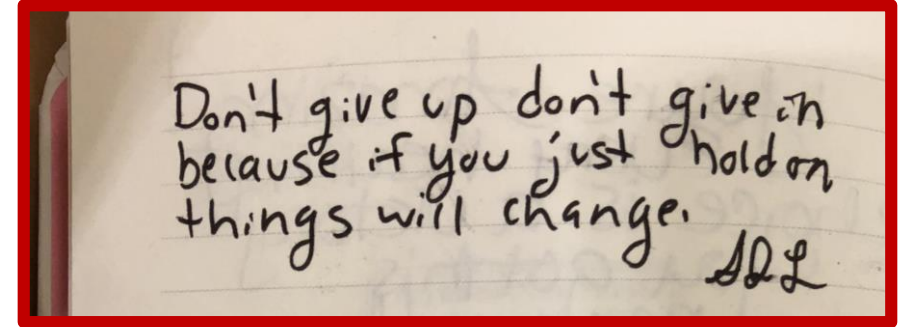 Don't give up don't give in
because if you just hold on
things will change.
SDL